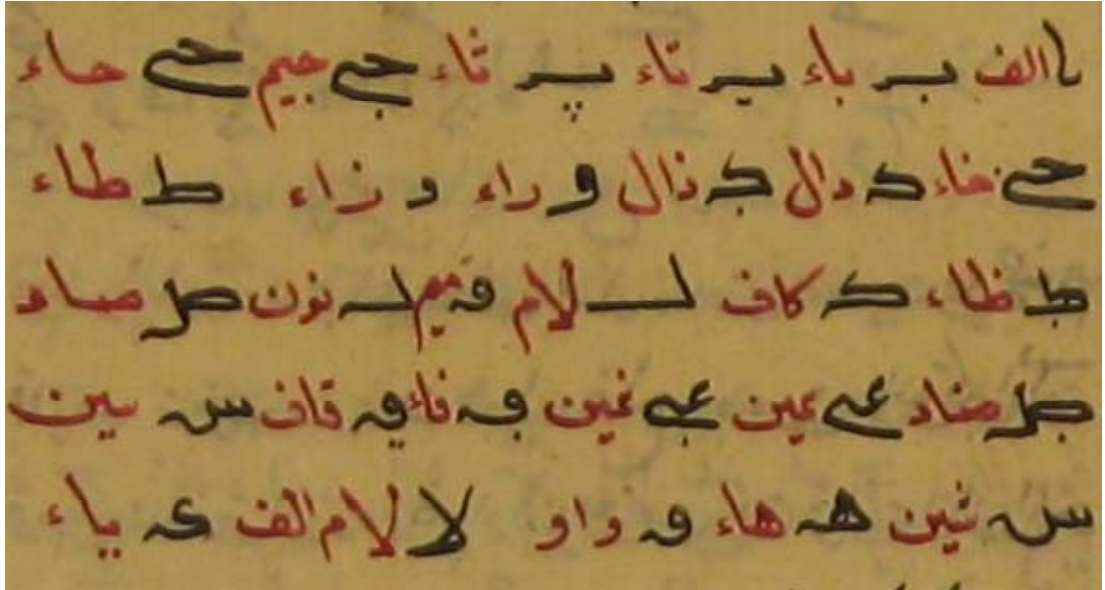 ا الف ب باء ت تاء ث ثاء ج جيم ح حاء
خ خاء د دال ذ ذال ر راء ز زاء ط طاء
ظ ظاء ك كاف ل لام م ميم ن نون ص صاد
ض ضاد ع عين غ غين ف فاء ق قاف س سين
ش شين ه هاء و واو لا لام الف ى ياء